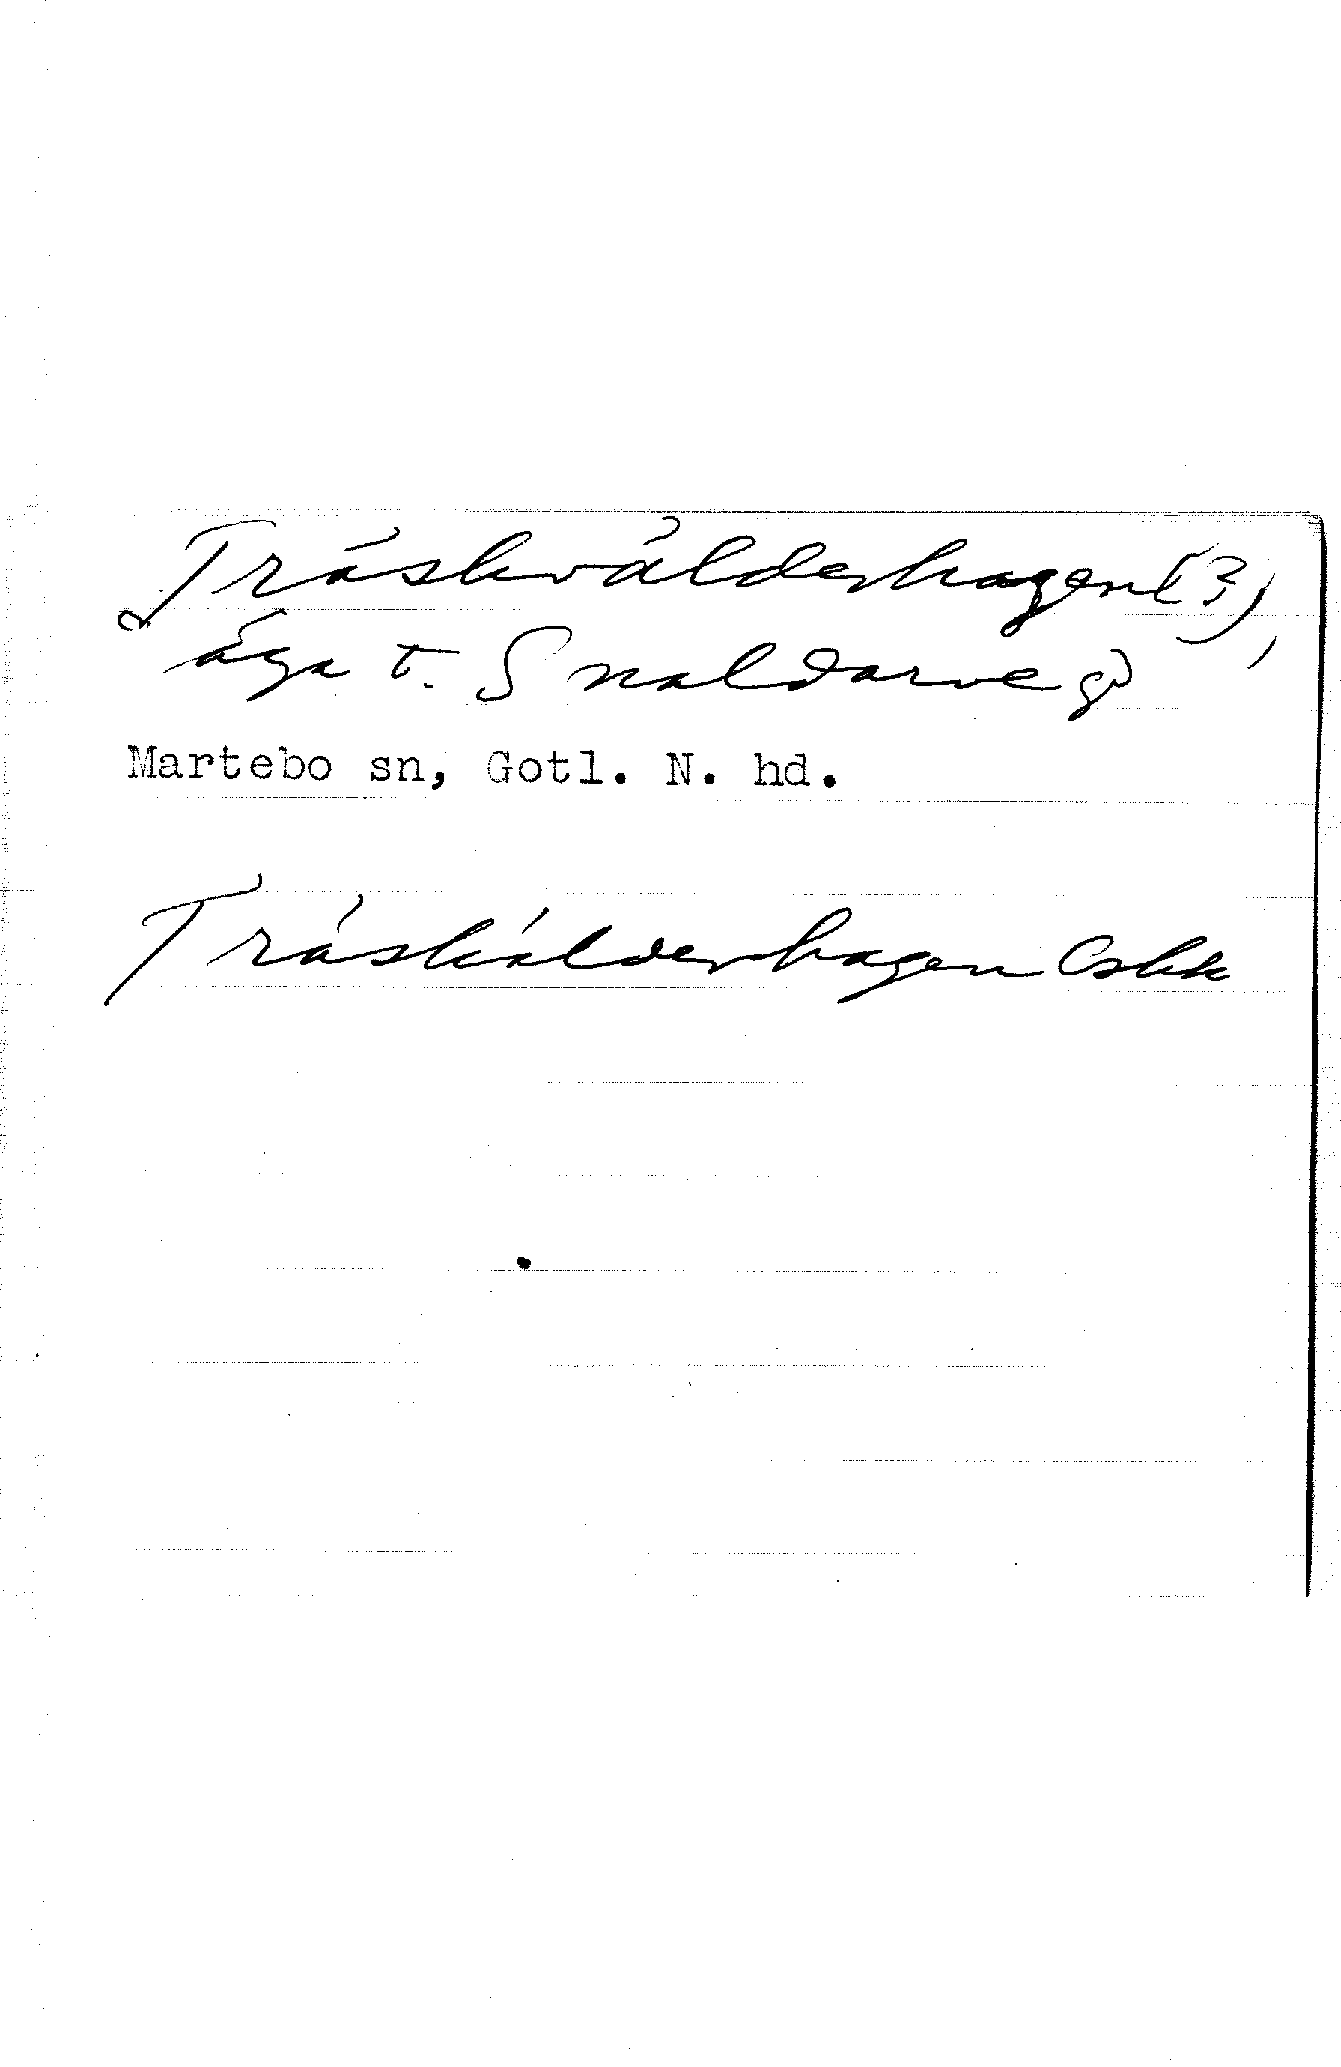 Träskvälderhagen (?),
äga t. Snaldarve gd
Martebo sn, Gotl. N. hd.
Träskälderhagen Cskk